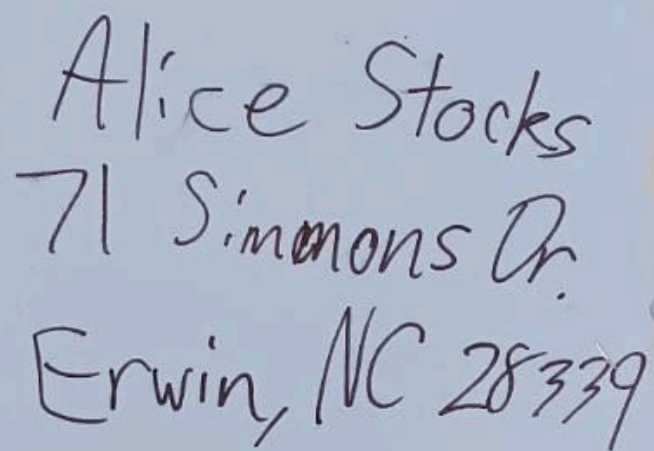 Alice Stocks
71 Simmons Dr.
Erwin, NC 28339